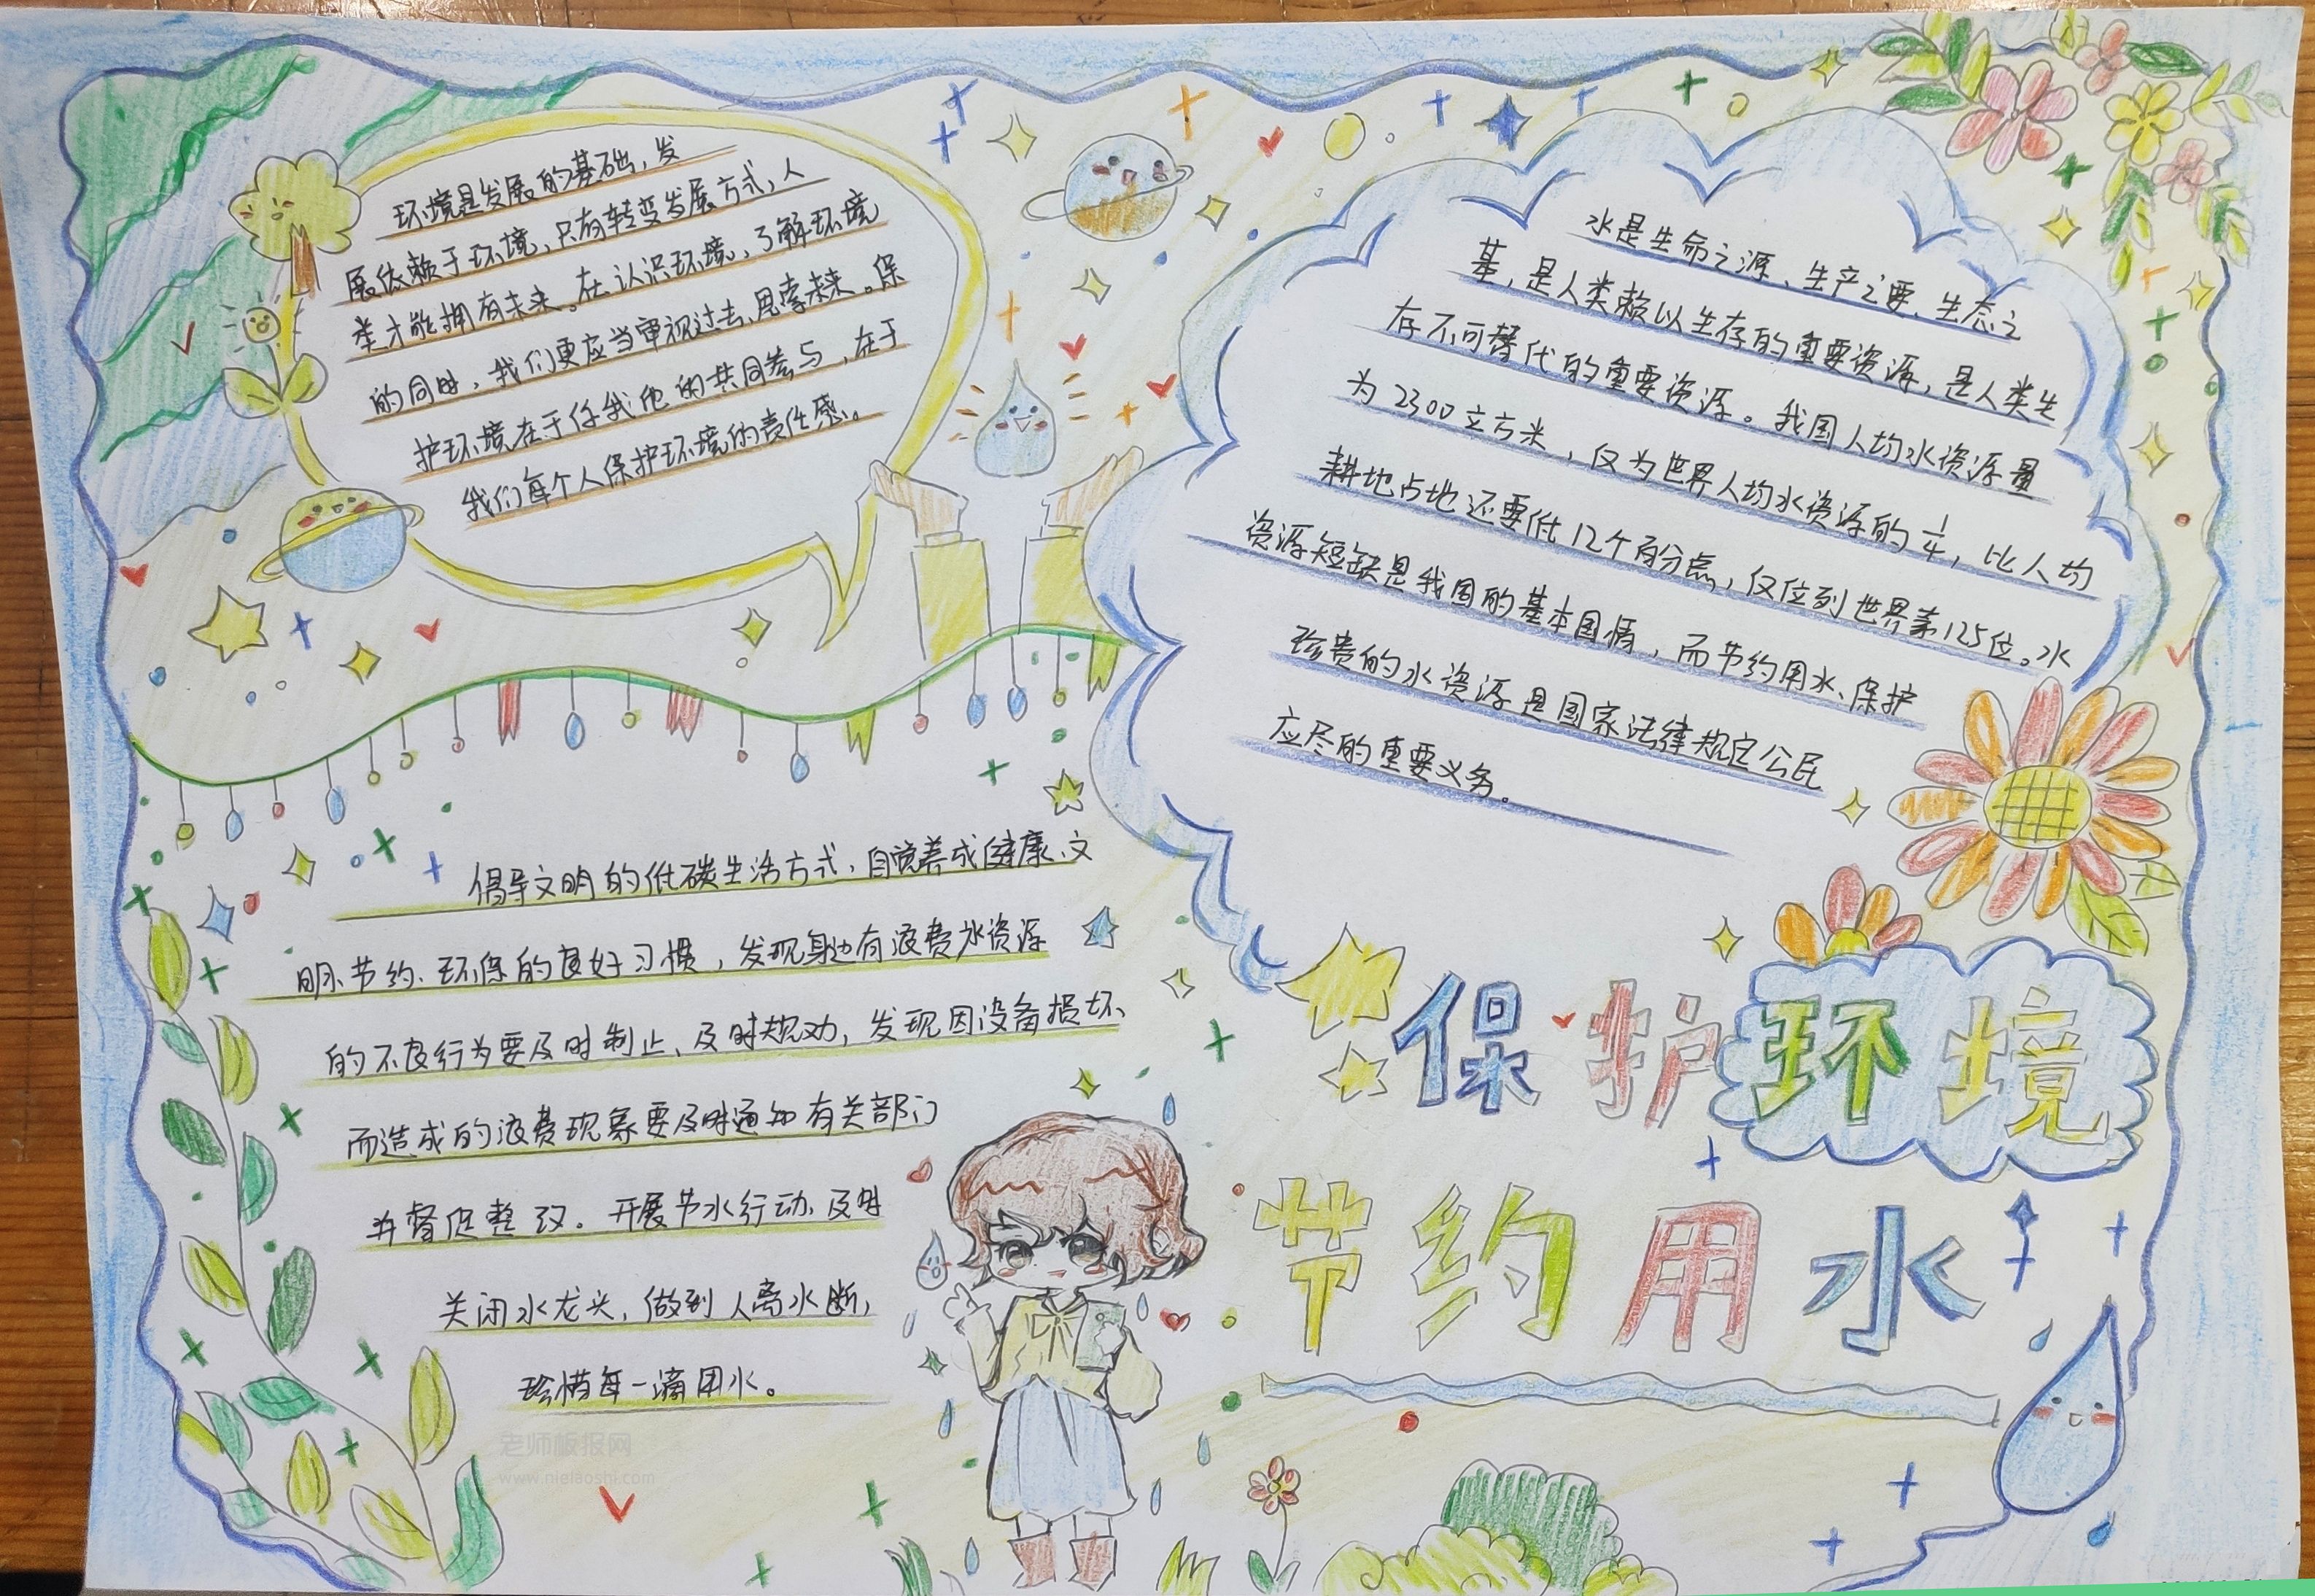 环境是发展的基础，发
展依赖于环境，只有转变发展方式，人
类才能拥有未来。在认识环境，了解环境
的同时，我们更应当审视过去，思索未来。保
护环境在于你我他的共同参与，在于
我们每个人保护环境的责任感。
水是生命之源、生产之要、生态之
基，是人类赖以生存的重要资源，是人类生
存不可替代的重要资源。我国人均水资源量
为2300立方米，仅为世界人均水资源的1/4，比人均
耕地占地还要低12个百分点，仅位列世界第125位。水
资源短缺是我国的基本国情，而节约用水、保护
珍贵的水资源是国家法律规定公民
应尽的重要义务。
倡导文明的低碳生活方式，自觉养成健康、文
明、节约、环保的良好习惯，发现身边有浪费水资源
的不良行为要及时制止、及时规劝，发现因设备损坏、
而造成的浪费现象要及时通知有关部门
并督促整改。开展节水行动、及时
关闭水龙头，做到人离水断，
珍惜每一滴用水。
保护环境
节约用水
老师板报网
www.nielaoshi.com